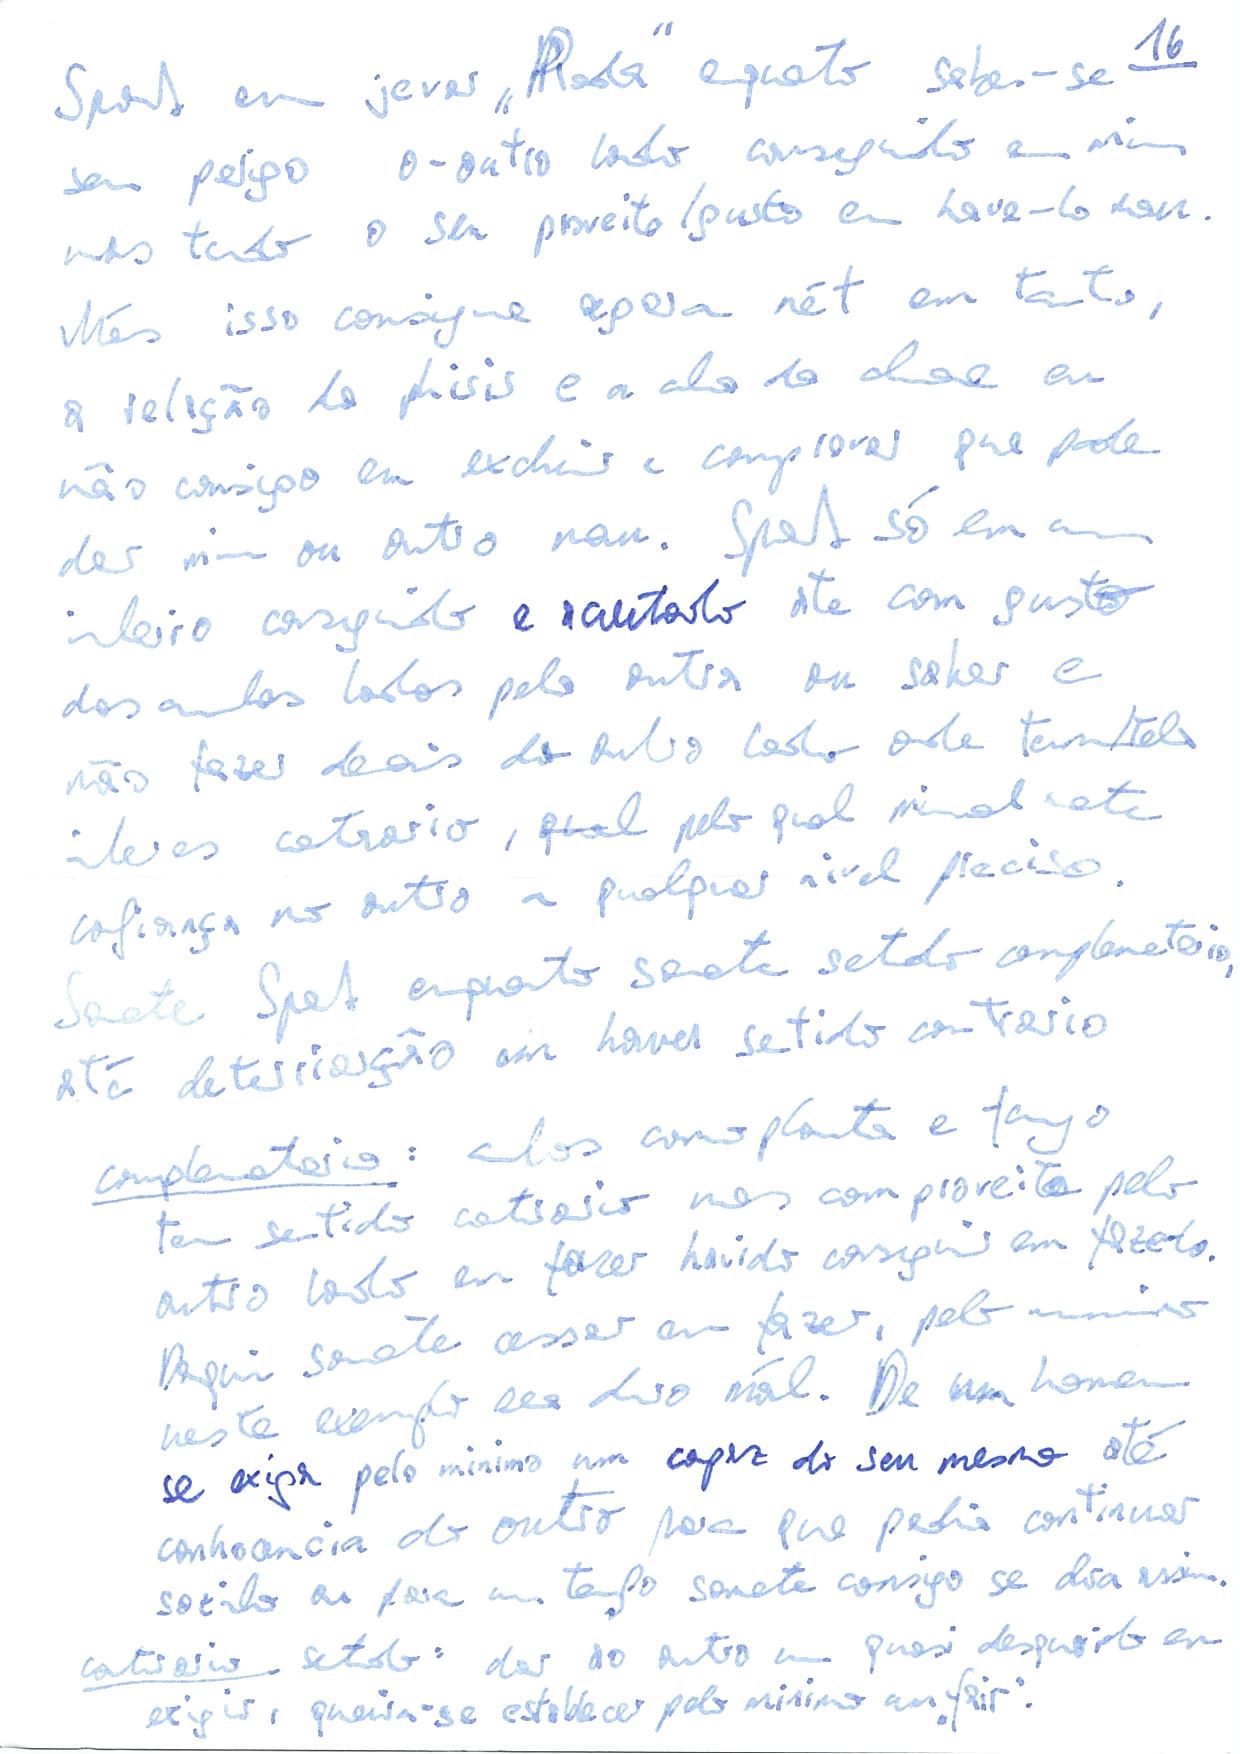 16
em jevar „ " enquato saber-se
sem perigo o-outro lado conseguido em mim
mas tendo o seu proveito/gusto em have-lo nam.
Mas isso consigue agora nét em tanto,
a relação da phisis e a do em
não consigo em excluir e comprovar que pode
dar mim ou outro nam. só em um
inteiro conseguido e ate com gusto
dos ambos lados pelo outra ou saber e
não fazer deais do outro lado onde tem/tela
interes catrario, qual pelo qual minal nate
cofiança no outro a qualquer nivel preciso.
Somete enquanto somete setido complemetario,
até em haver setido contrario
complemetario: ambos como planta e fungo
tem sentido catrario mas com proveito pelo
outro lado em fazer havido conseguir em fazelo.
Daqui somete cessar em fazer, pelo minimo
neste exemplo mál. De um homem
se exiga pelo minimo um capaz do seu mesmo até
do outro para que podia continuar
sozinho ou para um tempo somete consigo se dia assim.
catrario setido: dar ao outro um quasi desguardo em
exigir, queria-se establecer pelo minimo um „fair".